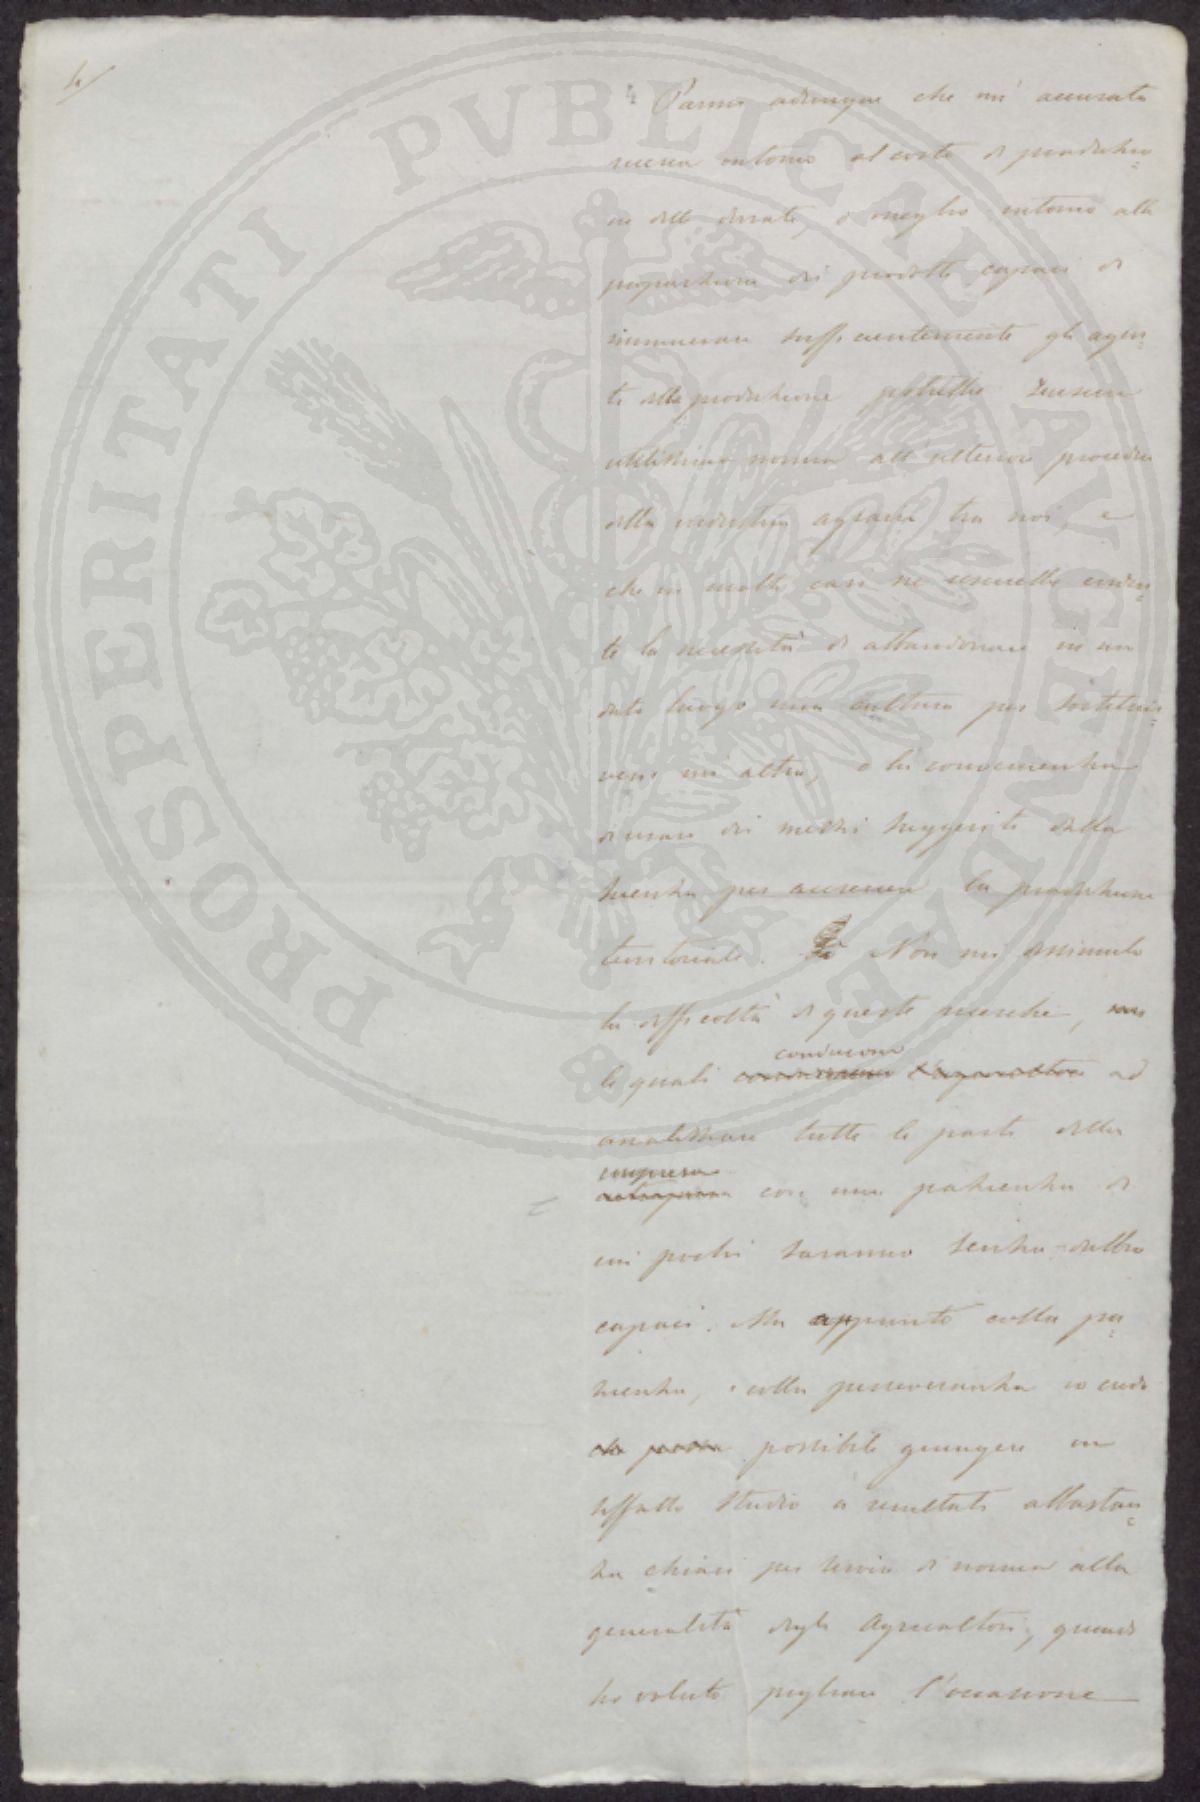 4/
Parmi adunque che un' accurata
ricerca intorno al costo di produzio=
ne delle derrate, o meglio intorno alla
proporzione dei prodotti capaci di
rimunerare sufficientemente gli agen=
ti della produzione potrebbe
utilissima norma all' ulteriore procedere
della industria agraria tra noi, e
che in molti casi ne
te la necessità di abbandonare in un
dato luogo una cultura per sostituir=
vene un altra, o la convenienza
di usare dei mezzi suggeriti dalla
scienza per accrescere la produzione
territoriale. Non mi dissimulo
la difficoltà di queste ricerche,
conducono
le quali ad
analizzare tutte le parti della
impresa
con una pazienza di
cui pochi saranno senza dubbio
capaci. Ma appunto colla pa=
zienza, e colla perseveranza io credo
che possa possibile giungere in
siffatto studio a resultati abbastan=
za chiari per servire di norma alla
generalità degli Agricoltori, quindi
ho voluto pigliare l'occasione
PROSPERITATI PVBLICAE AVGENDAE